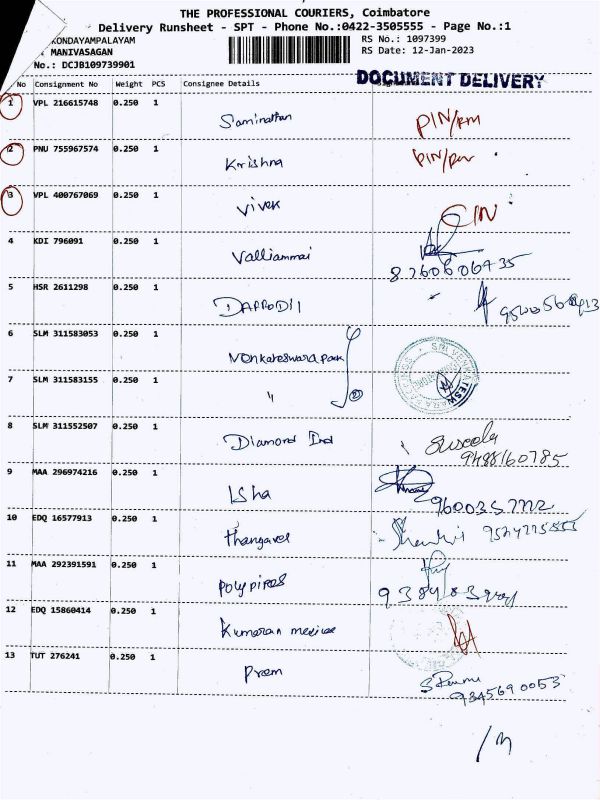 THE PROFESSIONAL COURIERS, Coimbatore
Delivery Runsheet - SPT - Phone No.:0422-3505555 - Page No.:1
KONDAYAMPALAYAM
RS No.: 1097399
MANIVASAGAN
RS Date: 12-Jan-2023
No.: DCJB109739901
DOCUMENT DELIVERY
No Consignment No Weight PCS Consignee Details
1 VPL 216615748 0.250 1
Saminathan PIN/RM
2 PNU 755967574 0.250 1
Krishna PIN/
3 VPL 400767069 0.250 1
Vivek
4 KDI 796091 0.250 1
Valliammai 8260606735
5 HSR 2611298 0.250 1
DAFFODIL
6 SLM 311583053 0.250 1
Venkateswara park
7 SLM 311583155 0.250 1
"
8 SLM 311552507 0.250 1
Diamond Ind Suseela
9488160785
9 MAA 296974216 0.250 1
Isha
10 EDQ 16577913 0.250 1
Thangavel
11 MAA 292391591 0.250 1
Polypipes
12 EDQ 15860414 0.250 1
Kumaran
13 TUT 276241 0.250 1
Prem
9345690053